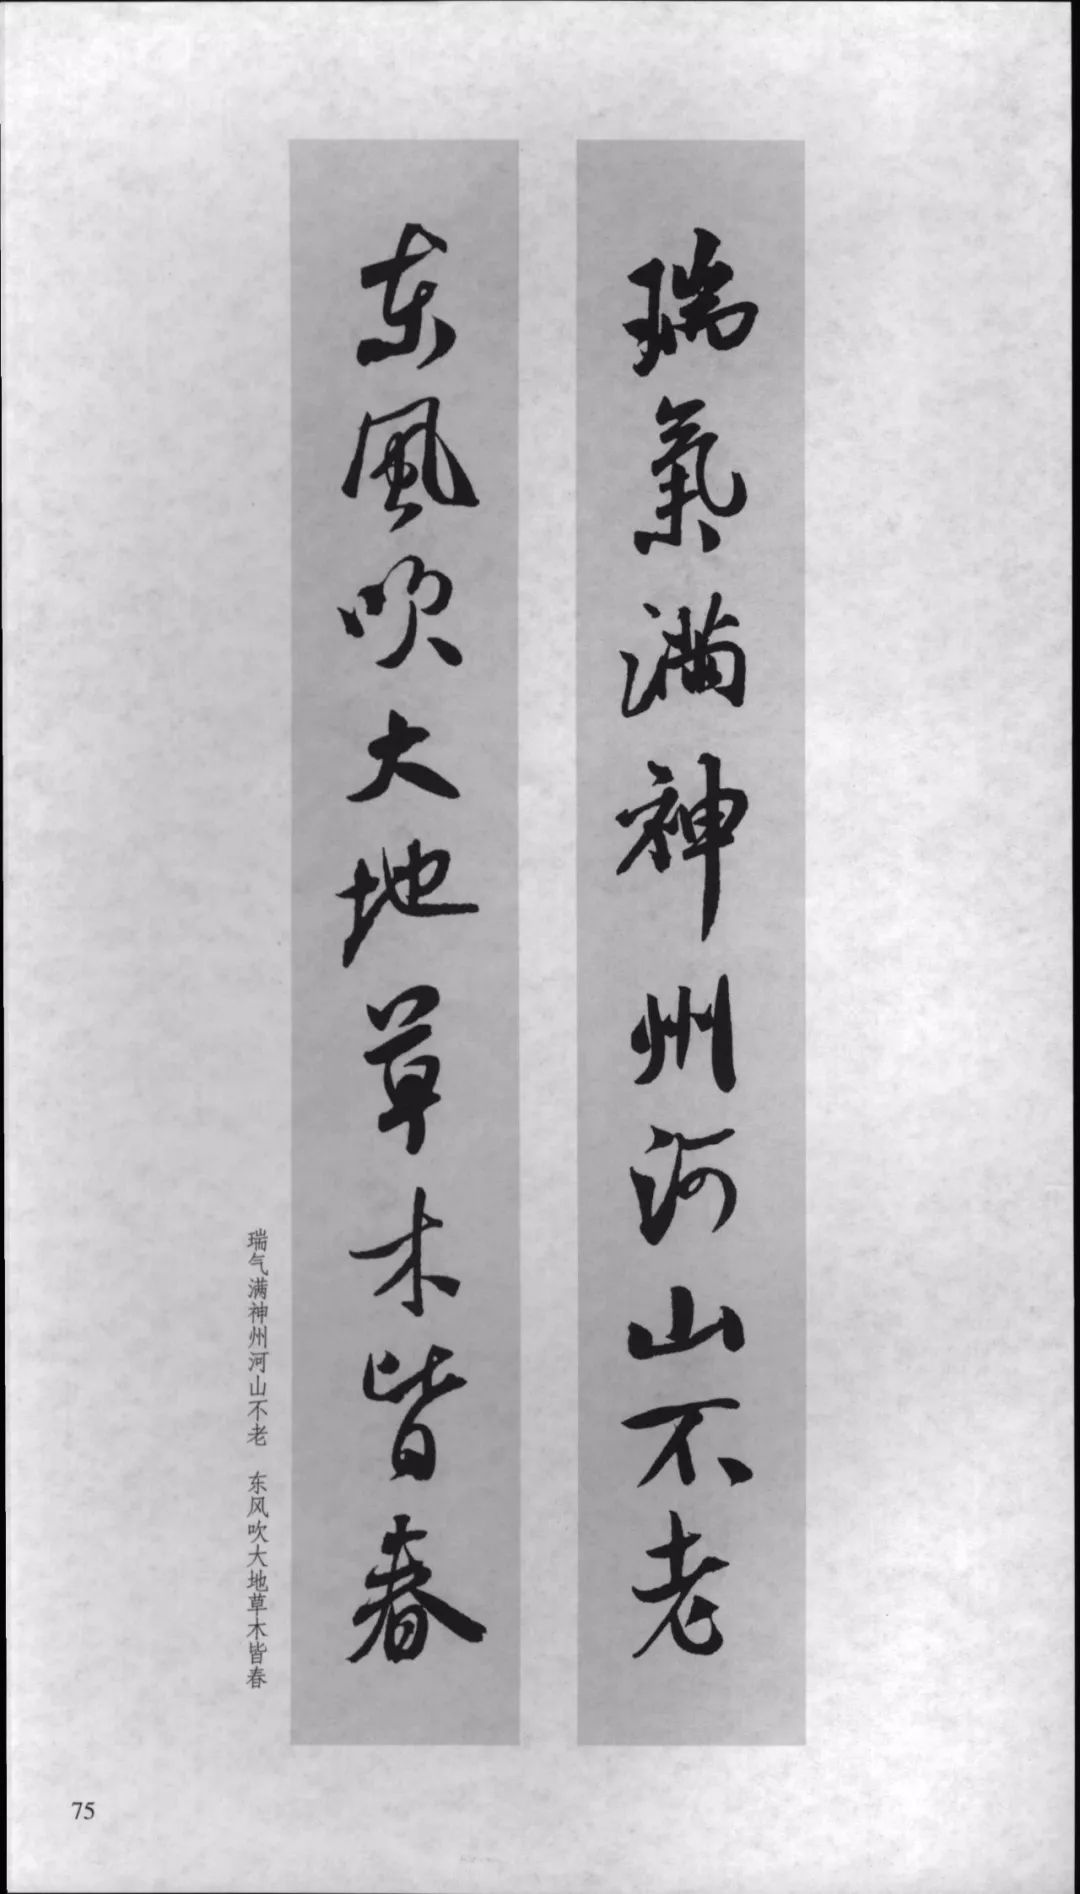 瑞氣满神州河山不老
东風吹大地草木皆春
瑞气满神州河山不老　东风吹大地草木皆春
75